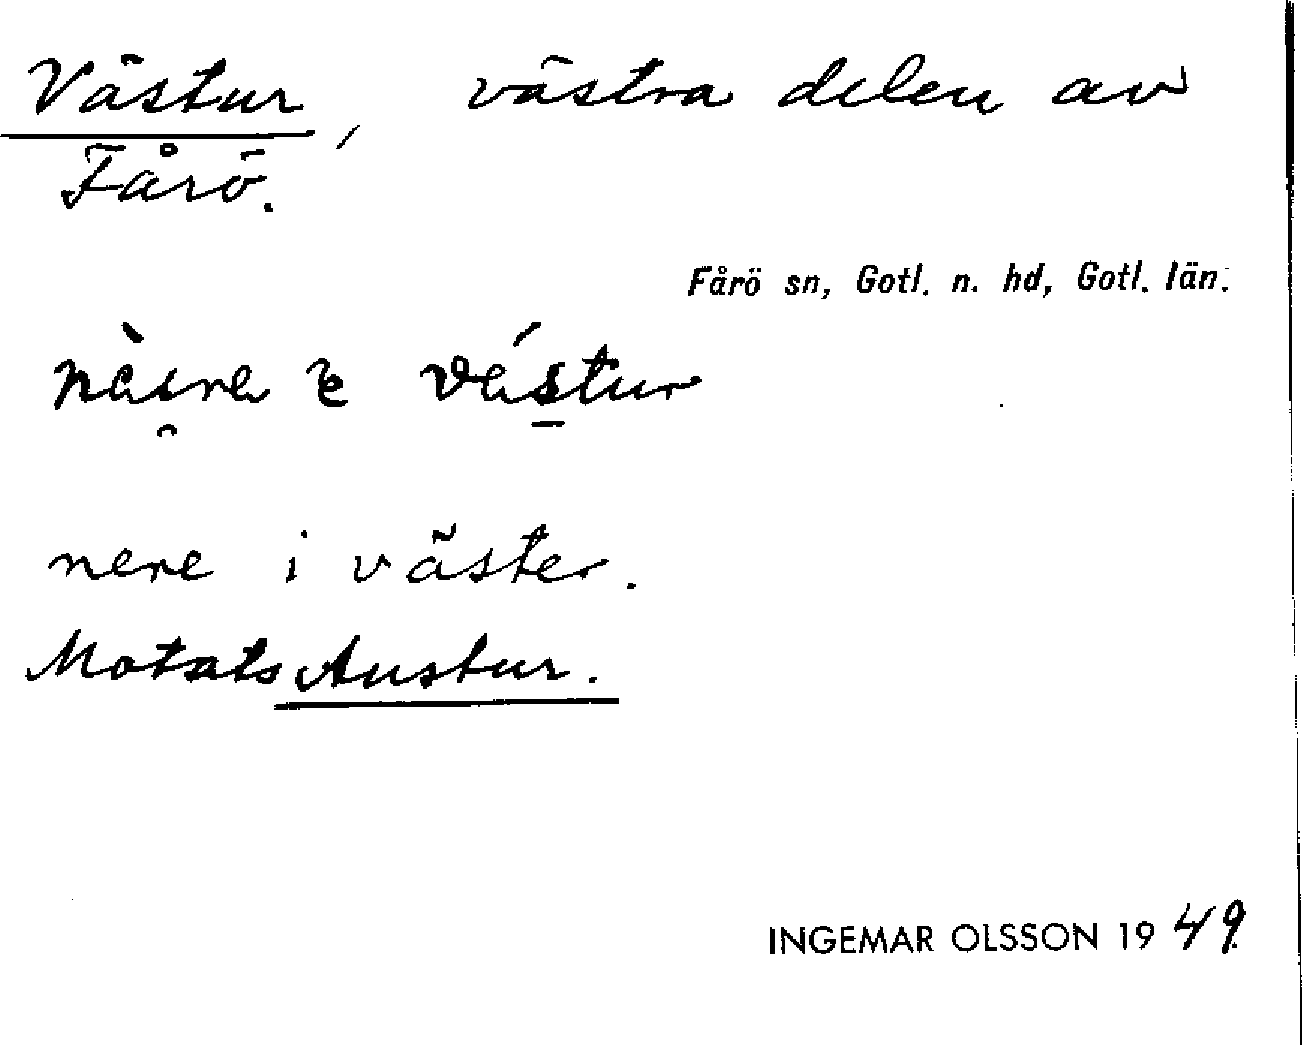 Västur, västra delen av
Fårö.
Fårö sn, Gotl. n. hd, Gotl. län.
västur
nere i väster.
Motsats Austur.
INGEMAR OLSSON 1949.